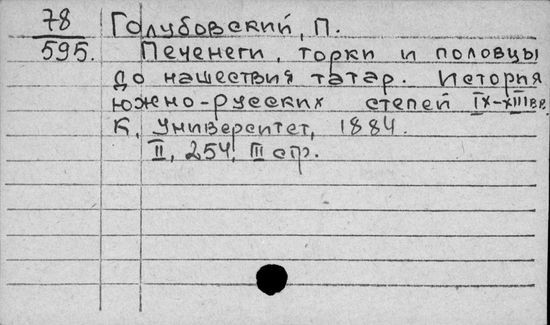 78 Голубовский, П.
595. Печенеги, торки и половцы
до нашествия татар. История
южно-русских степей IX-XIIIвв.
К, университет, 1884.
II, 254, III стр.